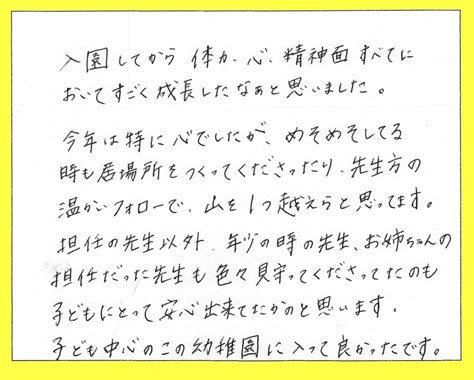 入園してから 体力、心、精神面 すべてに
おいてすごく成長したなぁと思いました。
今年は特に心でしたが、めそめそしてる
時も居場所をつくってくださったり、先生方の
温かいフォローで、山を1つ越えらと思ってます。
担任の先生以外、年少の時の先生、お姉ちゃんの
担任だった先生も色々見守ってくださってたのも
子どもにとって安心出来てたかのと思います。
子ども中心のこの幼稚園に入って良かったです。